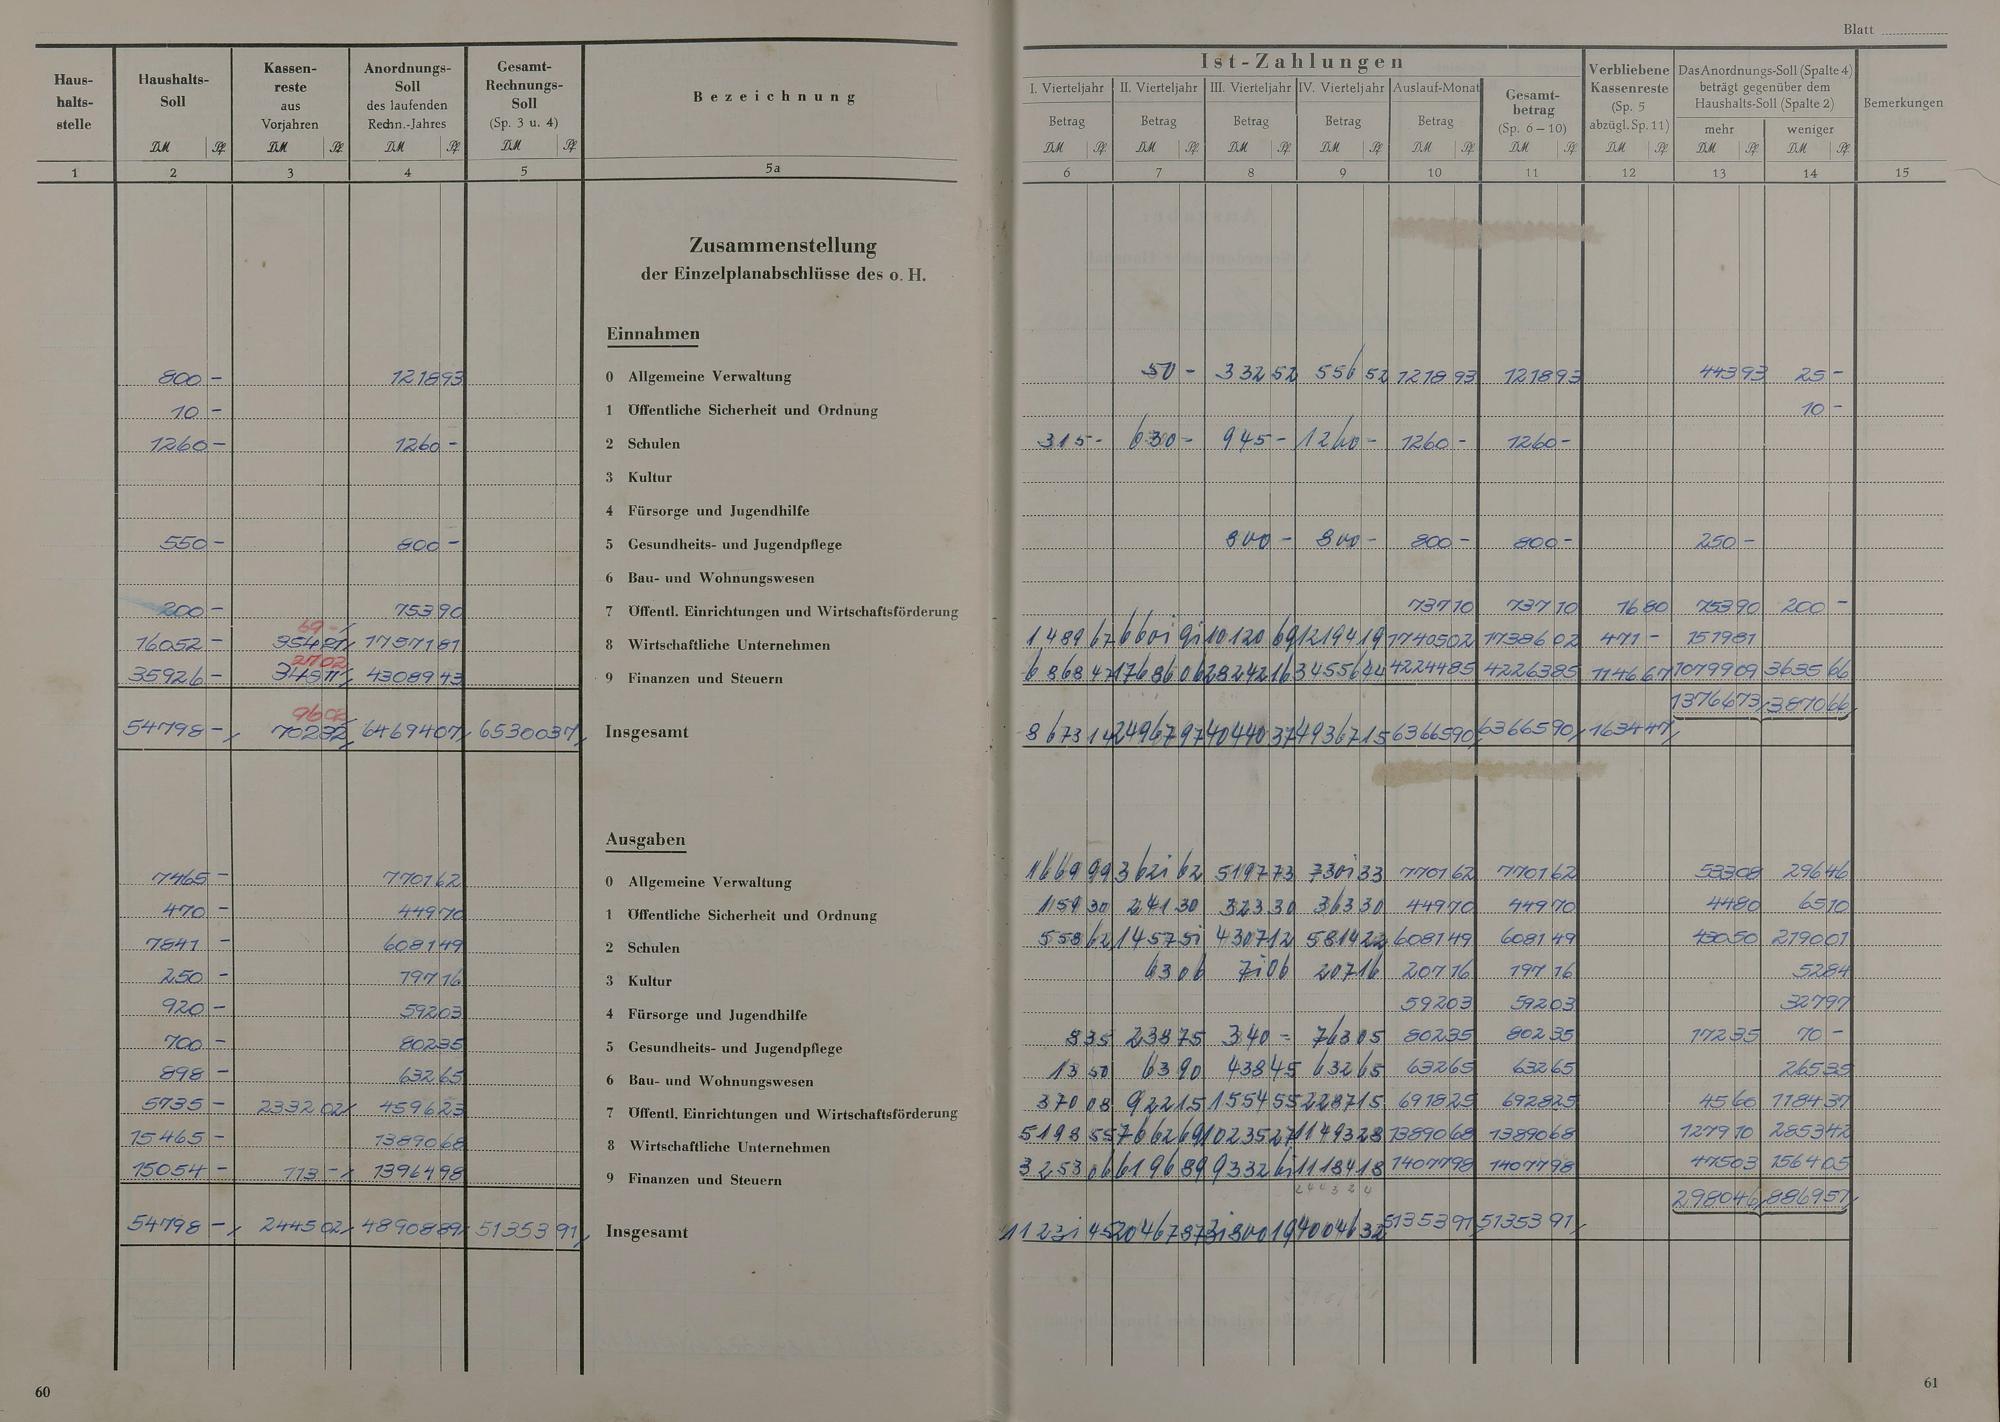 Blatt
Haus-
halts-
stelle
Haushalts-
Soll
Kassen-
reste
aus
Vorjahren
Anordnungs-
Soll
des laufenden
Rechn.-Jahres
Gesamt-
Rechnungs-
Soll
(Sp. 3 u. 4)
Bezeichnung
Ist-Zahlungen
I. Vierteljahr II. Vierteljahr III. Vierteljahr IV. Vierteljahr Auslauf-Monat
Betrag Betrag Betrag Betrag Betrag
Gesamt-
betrag
(Sp. 6 – 10)
Verbliebene
Kassenreste
(Sp. 5
abzügl. Sp. 11)
Das Anordnungs-Soll (Spalte 4)
beträgt gegenüber dem
Haushalts-Soll (Spalte 2)
mehr weniger
Bemerkungen
DM Pf DM Pf DM Pf DM Pf
DM Pf DM Pf DM Pf DM Pf DM Pf DM Pf DM Pf DM Pf DM Pf
1 2 3 4 5 5a 6 7 8 9 10 11 12 13 14 15
Zusammenstellung
der Einzelplanabschlüsse des o. H.
Einnahmen
800 – 1218 93 0 Allgemeine Verwaltung 50 – 332 52 556 52 1218 93 1218 93 443 93 25 –
10 – 1 Öffentliche Sicherheit und Ordnung 10 –
1260 – 1260 – 2 Schulen 315 – 630 – 945 – 1260 – 1260 – 1260 –
3 Kultur
4 Fürsorge und Jugendhilfe
550 – 800 – 5 Gesundheits- und Jugendpflege 800 – 800 – 800 – 800 – 250 –
6 Bau- und Wohnungswesen
200 – 753 90 7 Öffentl. Einrichtungen und Wirtschaftsförderung 737 10 737 10 16 80 753 90 200 –
69 –
16052 – 17571 81 8 Wirtschaftliche Unternehmen 1489 67 6601 91 10120 69 12194 19 17405 02 17386 02 471 – 1519 81
27 02
35926 – 43089 43 9 Finanzen und Steuern 6868 47 17686 06 28242 16 34556 44 42244 85 42263 85 1146 67 10799 09 3635 66
13766 73 3870 66
96 02
54798 – 702 32 64694 07 65300 37 Insgesamt 8673 14 24967 97 40440 37 49367 15 63665 90 63665 90 1634 47
Ausgaben
7465 – 7701 62 0 Allgemeine Verwaltung 1669 99 3621 62 5197 73 7301 33 7701 62 7701 62 533 08 296 46
470 – 449 70 1 Öffentliche Sicherheit und Ordnung 159 30 241 30 323 30 363 30 449 70 449 70 44 80 65 10
7841 – 6081 49 2 Schulen 558 62 1457 51 4307 12 5814 22 6081 49 6081 49 430 50 2190 01
250 – 197 16 3 Kultur 63 06 71 06 207 16 207 16 197 16 52 84
920 – 592 03 4 Fürsorge und Jugendhilfe 592 03 592 03 327 97
700 – 802 35 5 Gesundheits- und Jugendpflege 8 35 238 75 340 – 763 05 802 35 802 35 172 35 70 –
898 – 632 65 6 Bau- und Wohnungswesen 13 50 63 90 438 45 632 65 632 65 632 65 265 35
5735 – 2332 02 4596 23 7 Öffentl. Einrichtungen und Wirtschaftsförderung 370 08 922 15 1554 55 2287 15 6918 25 6928 25 45 60 1184 37
15465 – 13890 68 8 Wirtschaftliche Unternehmen 5198 55 7662 69 10235 27 11493 28 13890 68 13890 68 1279 10 2853 42
15054 – 113 – 13964 98 9 Finanzen und Steuern 3253 06 6196 89 9332 61 11184 18 14077 98 14077 98 475 03 1564 05
2980 46 8869 57
54798 – 2445 02 48908 89 51353 91 Insgesamt 11231 45 20467 87 31800 19 40046 32 51353 91 51353 91
60
61